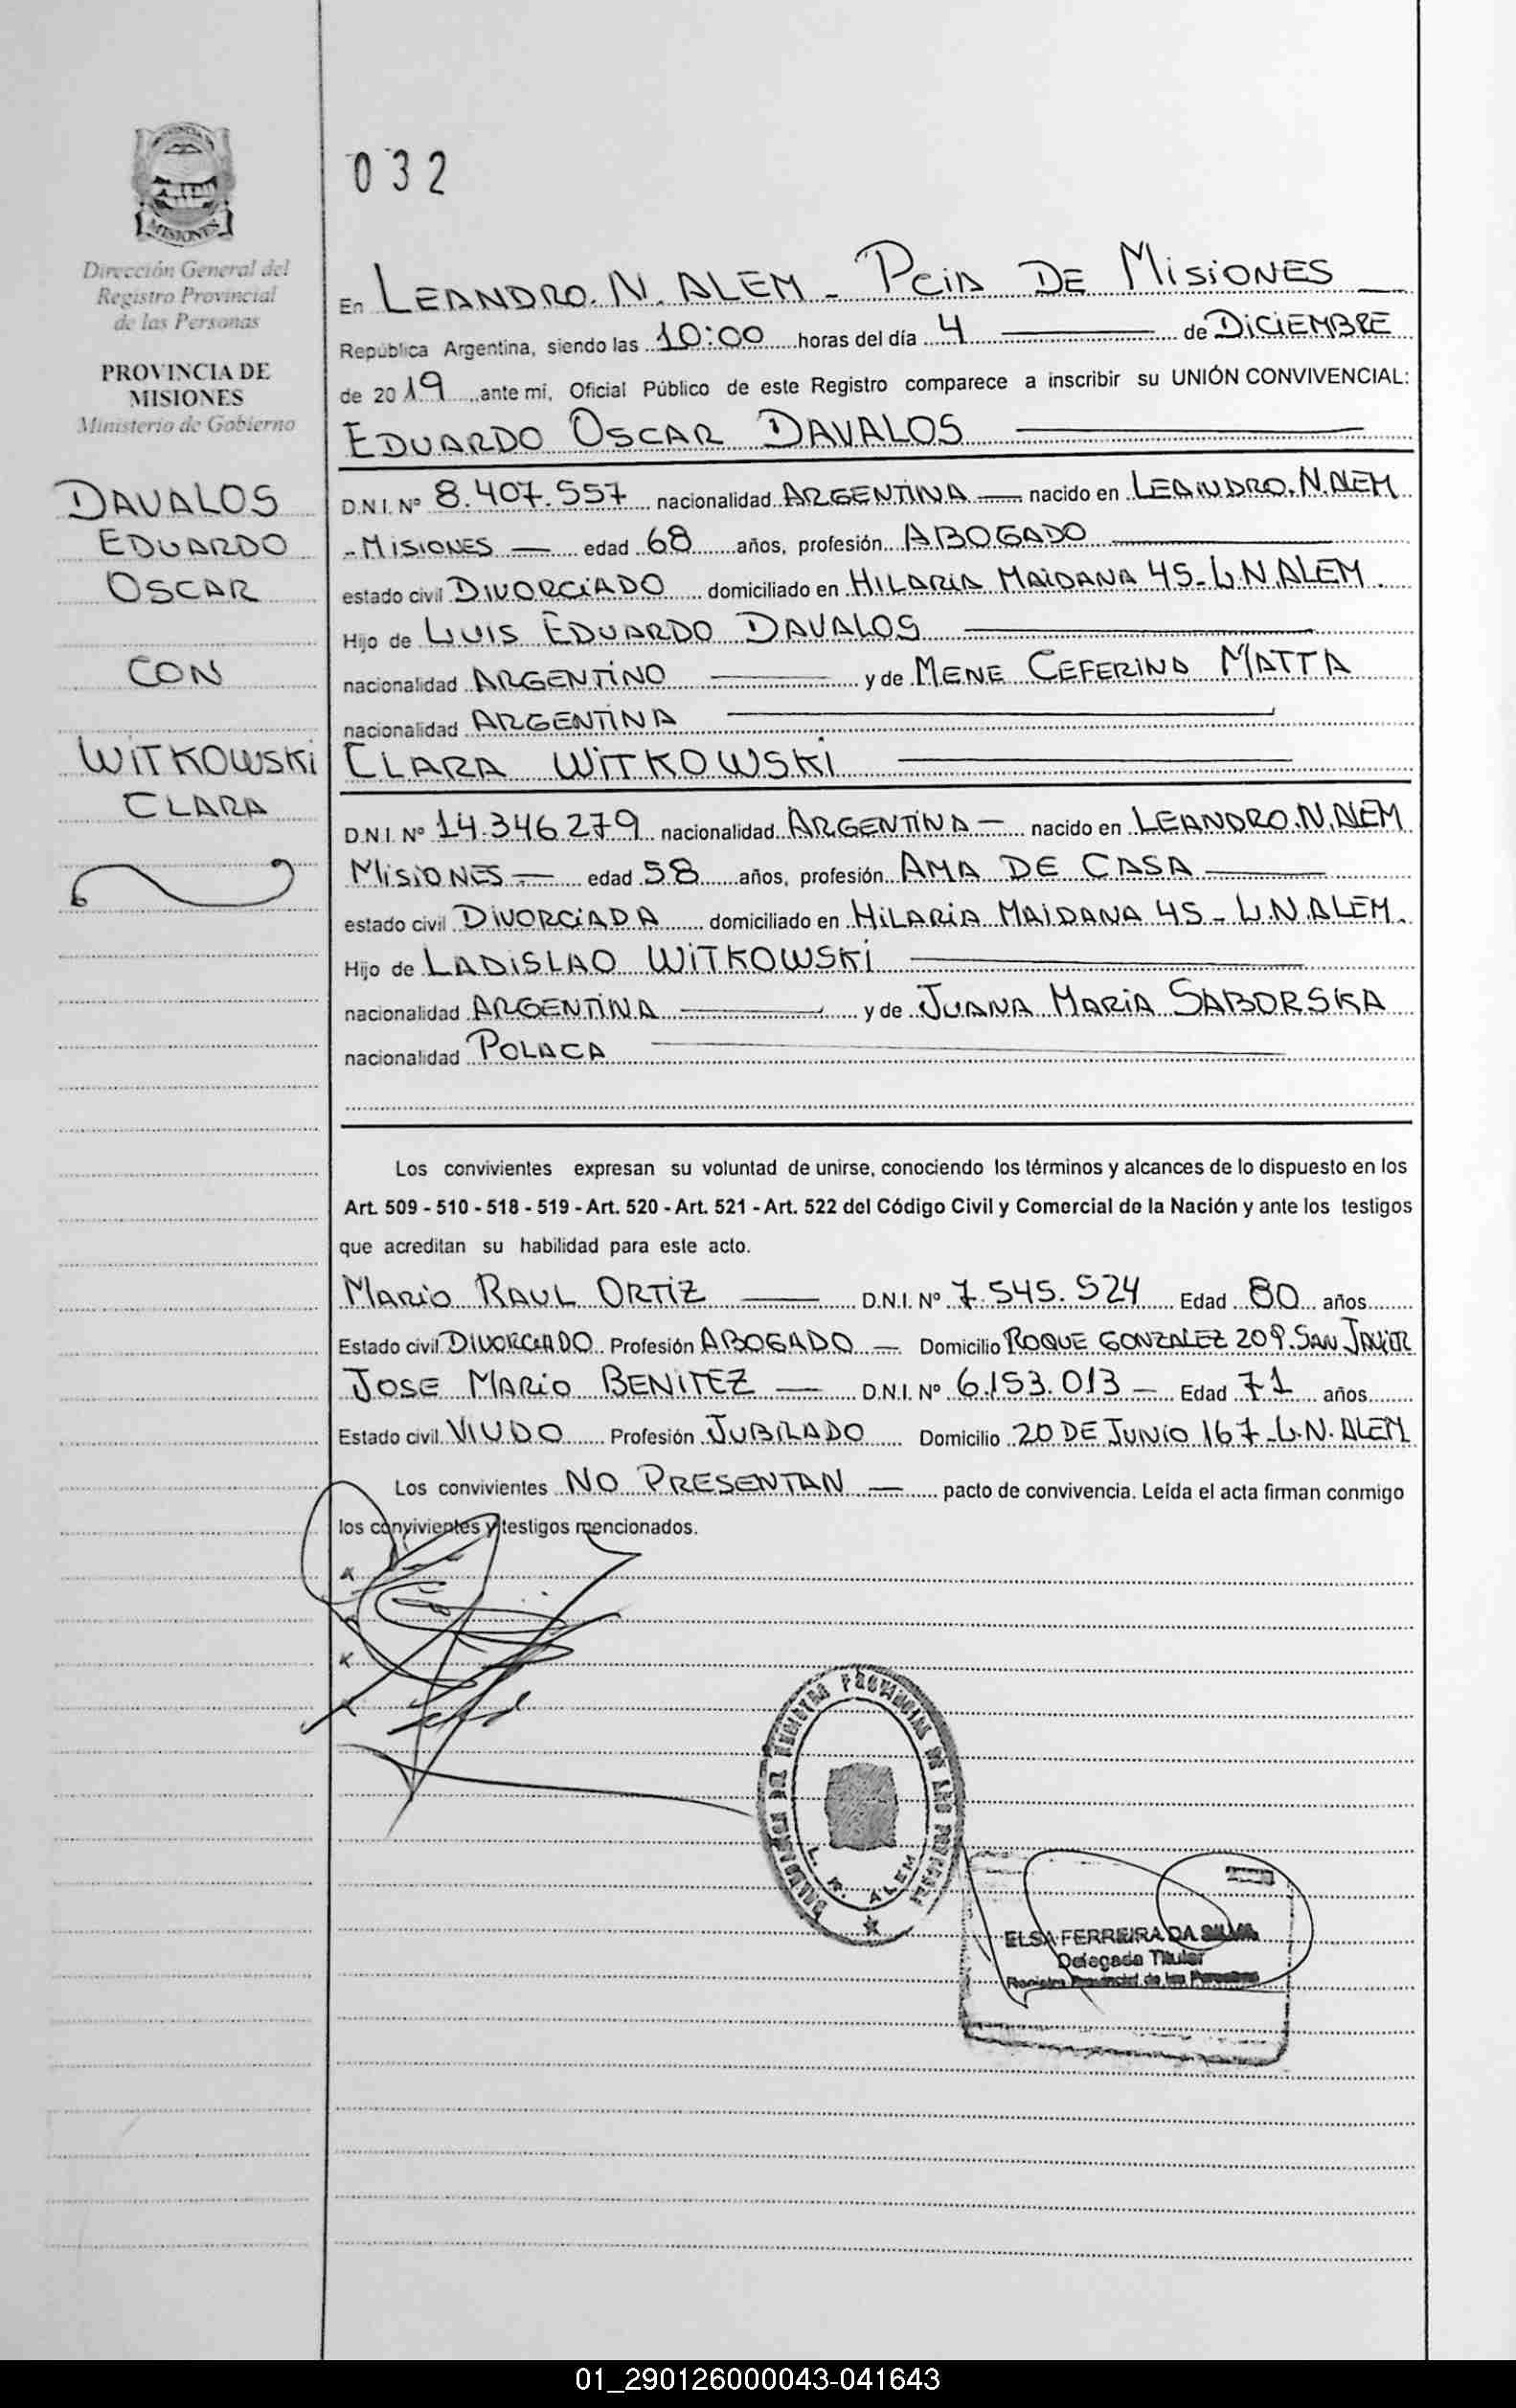 PROVINCIA DE
MISIONES
Dirección General del
Registro Provincial
de las Personas
PROVINCIA DE
MISIONES
Ministerio de Gobierno
DAVALOS
EDUARDO
OSCAR
CON
WITKOWSKI
CLARA
032
En LEANDRO. N. ALEM - PCIA DE MISIONES
República Argentina, siendo las 10:00 horas del día 4 de DICIEMBRE
de 2019 ante mí, Oficial Público de este Registro comparece a inscribir su UNIÓN CONVIVENCIAL:
EDUARDO OSCAR DAVALOS
D.N.I. Nº 8.407.557 nacionalidad ARGENTINA — nacido en LEANDRO.N.ALEM
- MISIONES — edad 68 años, profesión ABOGADO
estado civil DIVORCIADO domiciliado en HILARIA MAIDANA 45 - L.N.ALEM.
Hijo de LUIS EDUARDO DAVALOS
nacionalidad ARGENTINO y de MENE CEFERINA MATTA
nacionalidad ARGENTINA
CLARA WITKOWSKI
D.N.I. Nº 14.346.279 nacionalidad ARGENTINA — nacido en LEANDRO.N.ALEM
MISIONES — edad 58 años, profesión AMA DE CASA
estado civil DIVORCIADA domiciliado en HILARIA MAIDANA 45 - L.N.ALEM.
Hijo de LADISLAO WITKOWSKI
nacionalidad ARGENTINA y de JUANA MARIA SABORSKA
nacionalidad POLACA
Los convivientes expresan su voluntad de unirse, conociendo los términos y alcances de lo dispuesto en los
Art. 509 - 510 - 518 - 519 - Art. 520 - Art. 521 - Art. 522 del Código Civil y Comercial de la Nación y ante los testigos
que acreditan su habilidad para este acto.
MARIO RAUL ORTIZ — D.N.I. Nº 7.545.524 Edad 80 años
Estado civil DIVORCIADO Profesión ABOGADO — Domicilio ROQUE GONZALEZ 209. SAN JAVIER
JOSE MARIO BENITEZ — D.N.I. Nº 6.153.013 — Edad 71 años
Estado civil VIUDO Profesión JUBILADO Domicilio 20 DE JUNIO 167 - L.N. ALEM
Los convivientes NO PRESENTAN — pacto de convivencia. Leída el acta firman conmigo
los convivientes y testigos mencionados.
REGISTRO PROVINCIAL DE LAS PERSONAS
L. N. ALEM
ELSA FERREIRA DA SILVA
Delegada Titular
Registro Provincial de las Personas
01_290126000043-041643